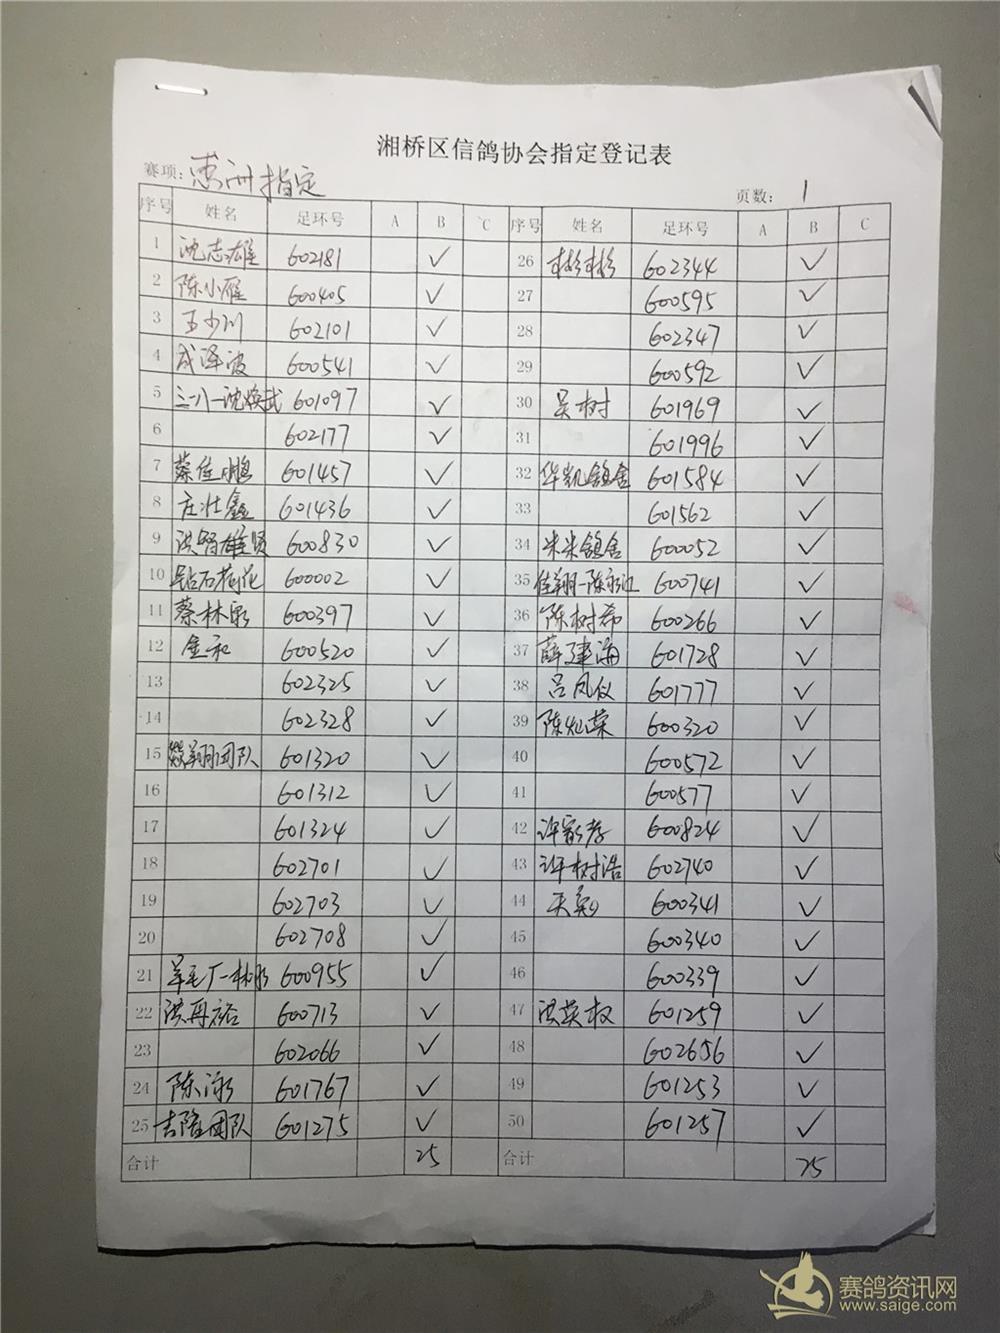 湘桥区信鸽协会指定登记表
赛项: 惠洲指定 页数: 1
序号 姓名 足环号 A B C 序号 姓名 足环号 A B C
1 沈志雄 602181 ✓ 26 彬彬 602344 ✓
2 陈小雁 600405 ✓ 27 600595 ✓
3 王少川 602101 ✓ 28 602347 ✓
4 成泽波 600541 ✓ 29 600592 ✓
5 三八一沈焕武 601097 ✓ 30 吴树 601969 ✓
6 602177 ✓ 31 601996 ✓
7 蔡佳鹏 601457 ✓ 32 华凯鸽舍 601584 ✓
8 庄壮鑫 601436 ✓ 33 601562 ✓
9 洪智雄贤 600830 ✓ 34 米米鸽舍 600052 ✓
10 钻石荷花 600002 ✓ 35 佳翔-陈永江 600741 ✓
11 蔡林泉 600397 ✓ 36 陈树希 600266 ✓
12 金和 600520 ✓ 37 薛建海 601728 ✓
13 602325 ✓ 38 吕凤仪 601777 ✓
14 602328 ✓ 39 陈灿荣 600320 ✓
15 翔团队 601320 ✓ 40 600572 ✓
16 601312 ✓ 41 600577 ✓
17 601324 ✓ 42 许家孝 600824 ✓
18 602701 ✓ 43 许树浩 602740 ✓
19 602703 ✓ 44 600341 ✓
20 602708 ✓ 45 600340 ✓
21 羊毛厂一林彬 600955 ✓ 46 600339 ✓
22 洪再裕 600713 ✓ 47 洪英权 601259 ✓
23 602066 ✓ 48 602656 ✓
24 陈泳 601767 ✓ 49 601253 ✓
25 吉隆团队 601275 ✓ 50 601257 ✓
合计 25 合计 25
赛鸽资讯网
www.saige.com